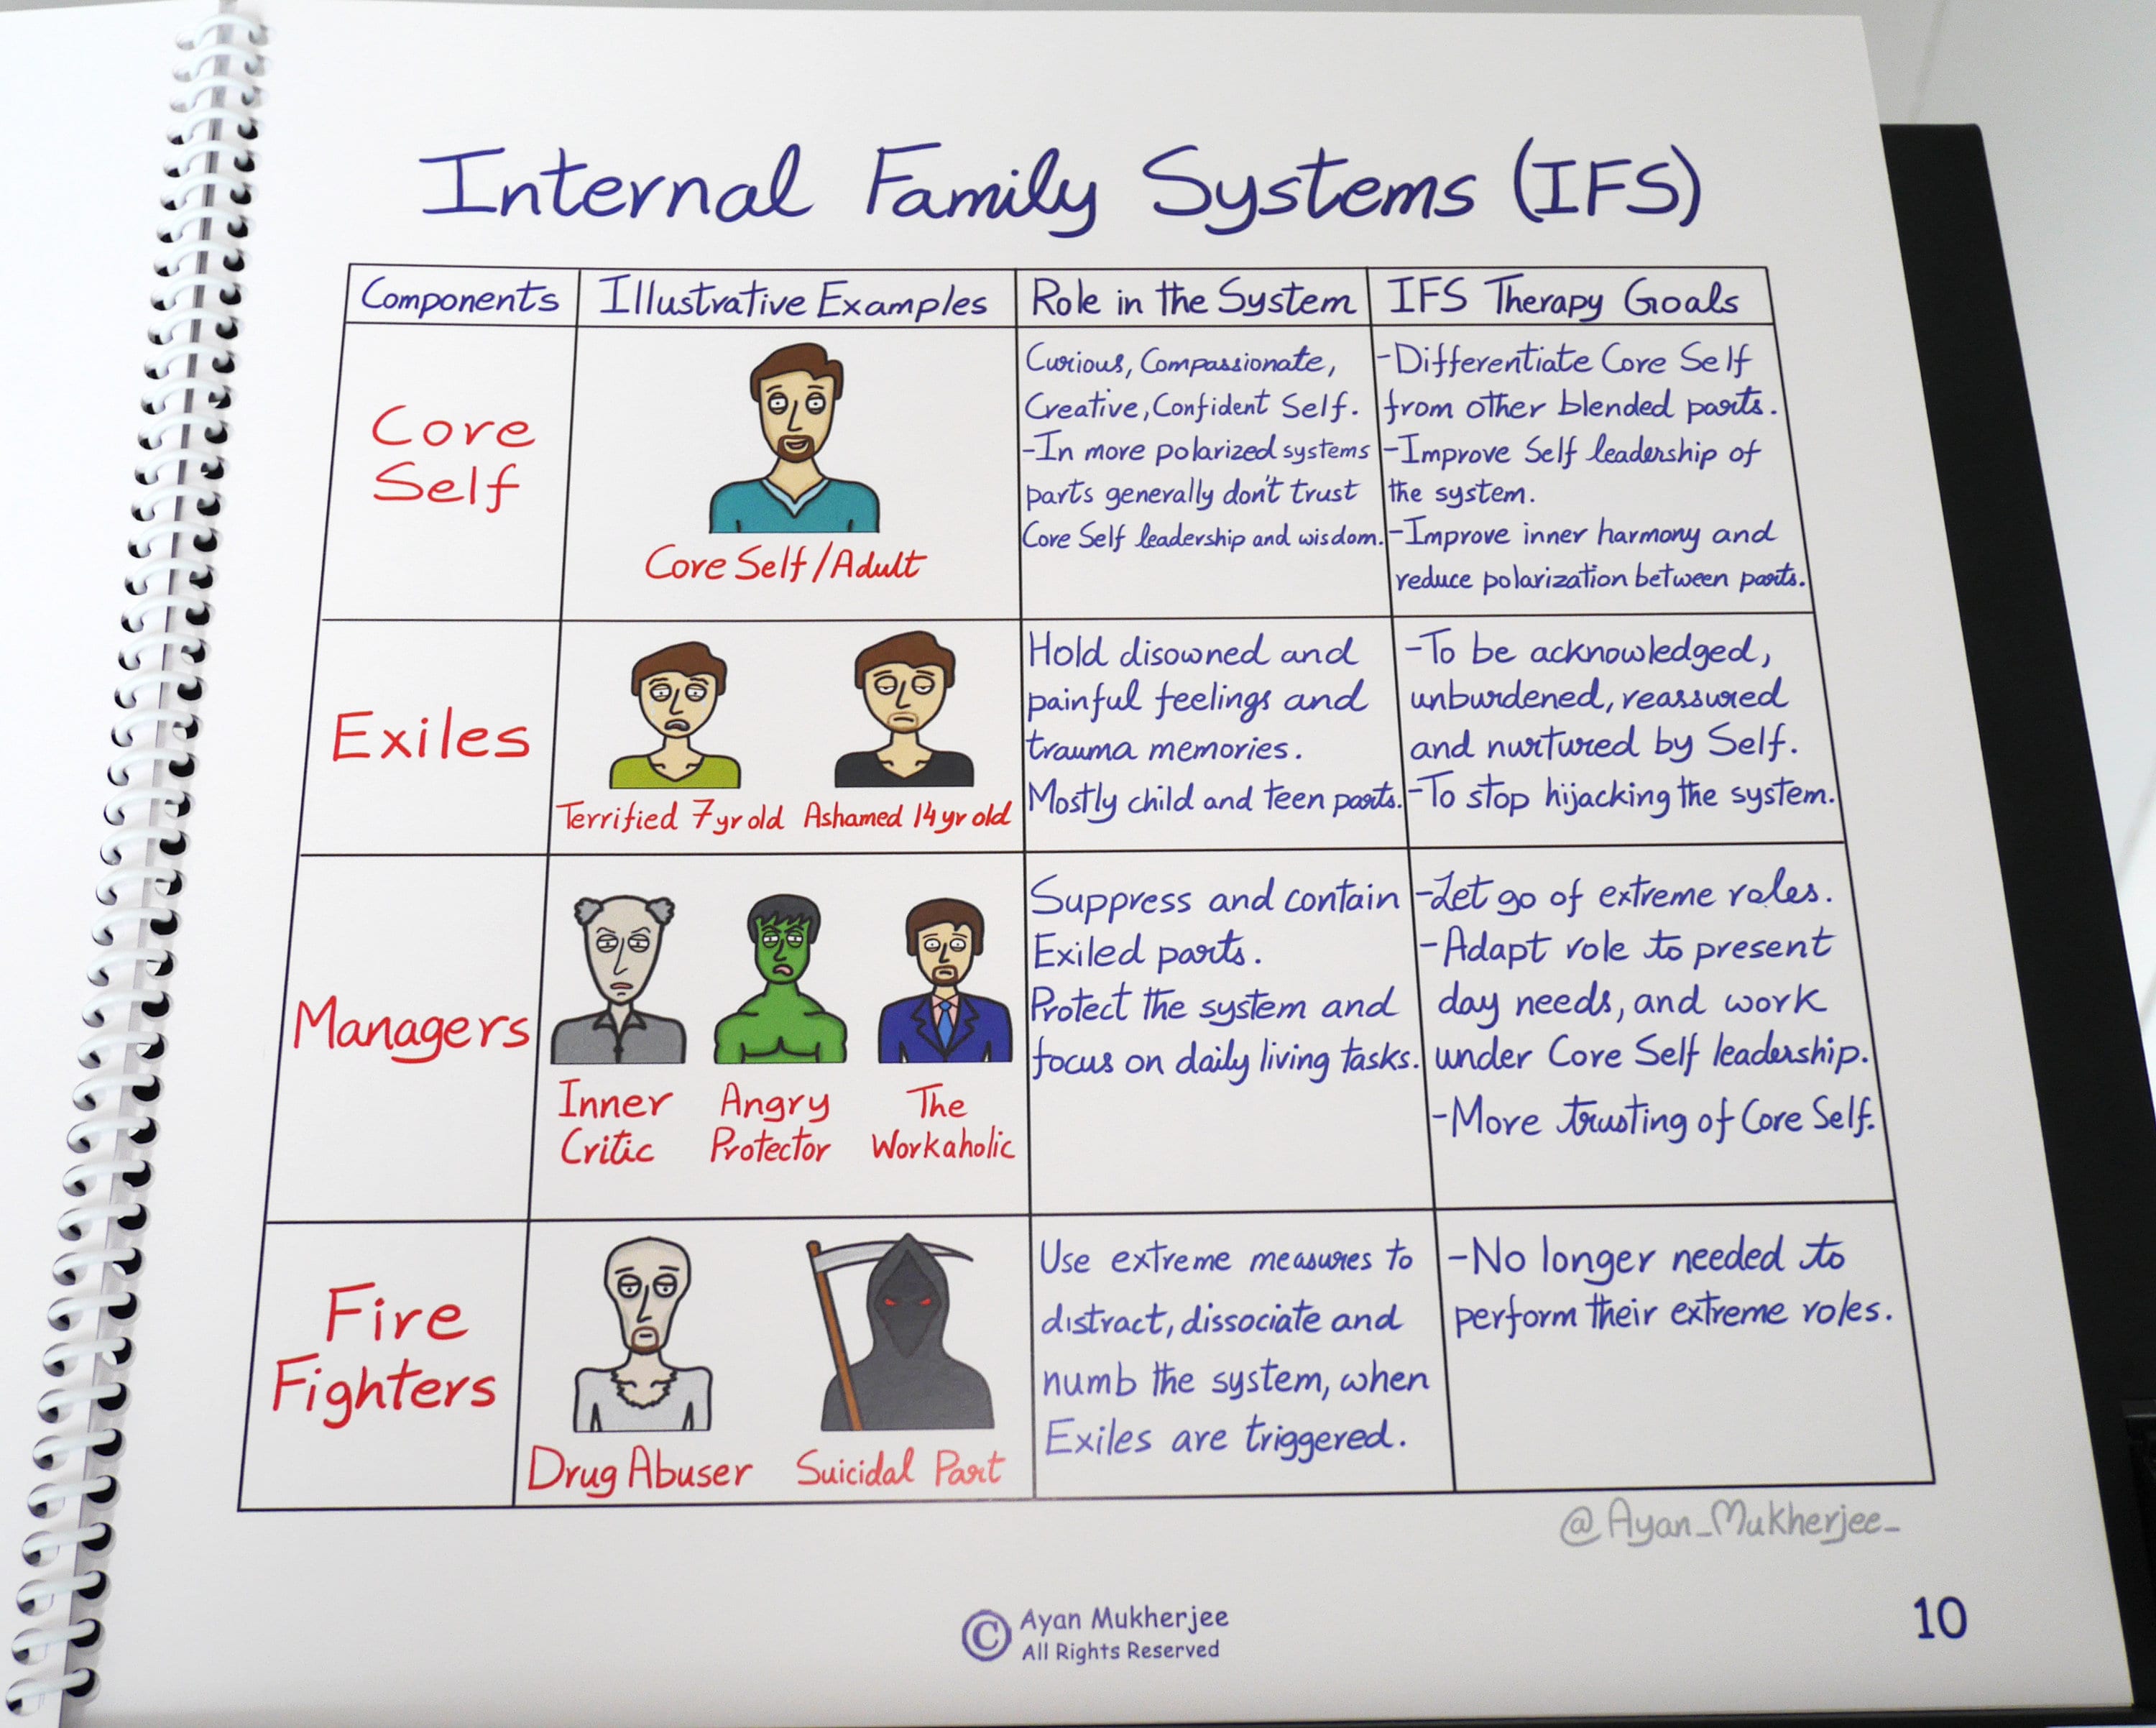 Internal Family Systems (IFS)
Components
Illustrative Examples
Role in the System
IFS Therapy Goals
Core
Self
Core Self/Adult
Curious, Compassionate,
Creative, Confident Self.
-In more polarized systems
parts generally don't trust
Core Self leadership and wisdom.
-Differentiate Core Self
from other blended parts.
-Improve Self leadership of
the system.
-Improve inner harmony and
reduce polarization between parts.
Exiles
Terrified 7yr old
Ashamed 14yr old
Hold disowned and
painful feelings and
trauma memories.
Mostly child and teen parts.
-To be acknowledged,
unburdened, reassured
and nurtured by Self.
-To stop hijacking the system.
Managers
Inner
Critic
Angry
Protector
The
Workaholic
Suppress and contain
Exiled parts.
Protect the system and
focus on daily living tasks.
-Let go of extreme roles.
-Adapt role to present
day needs, and work
under Core Self leadership.
-More trusting of Core Self.
Fire
Fighters
Drug Abuser
Suicidal Part
Use extreme measures to
distract, dissociate and
numb the system, when
Exiles are triggered.
-No longer needed to
perform their extreme roles.
@Ayan_Mukherjee_
© Ayan Mukherjee
All Rights Reserved
10